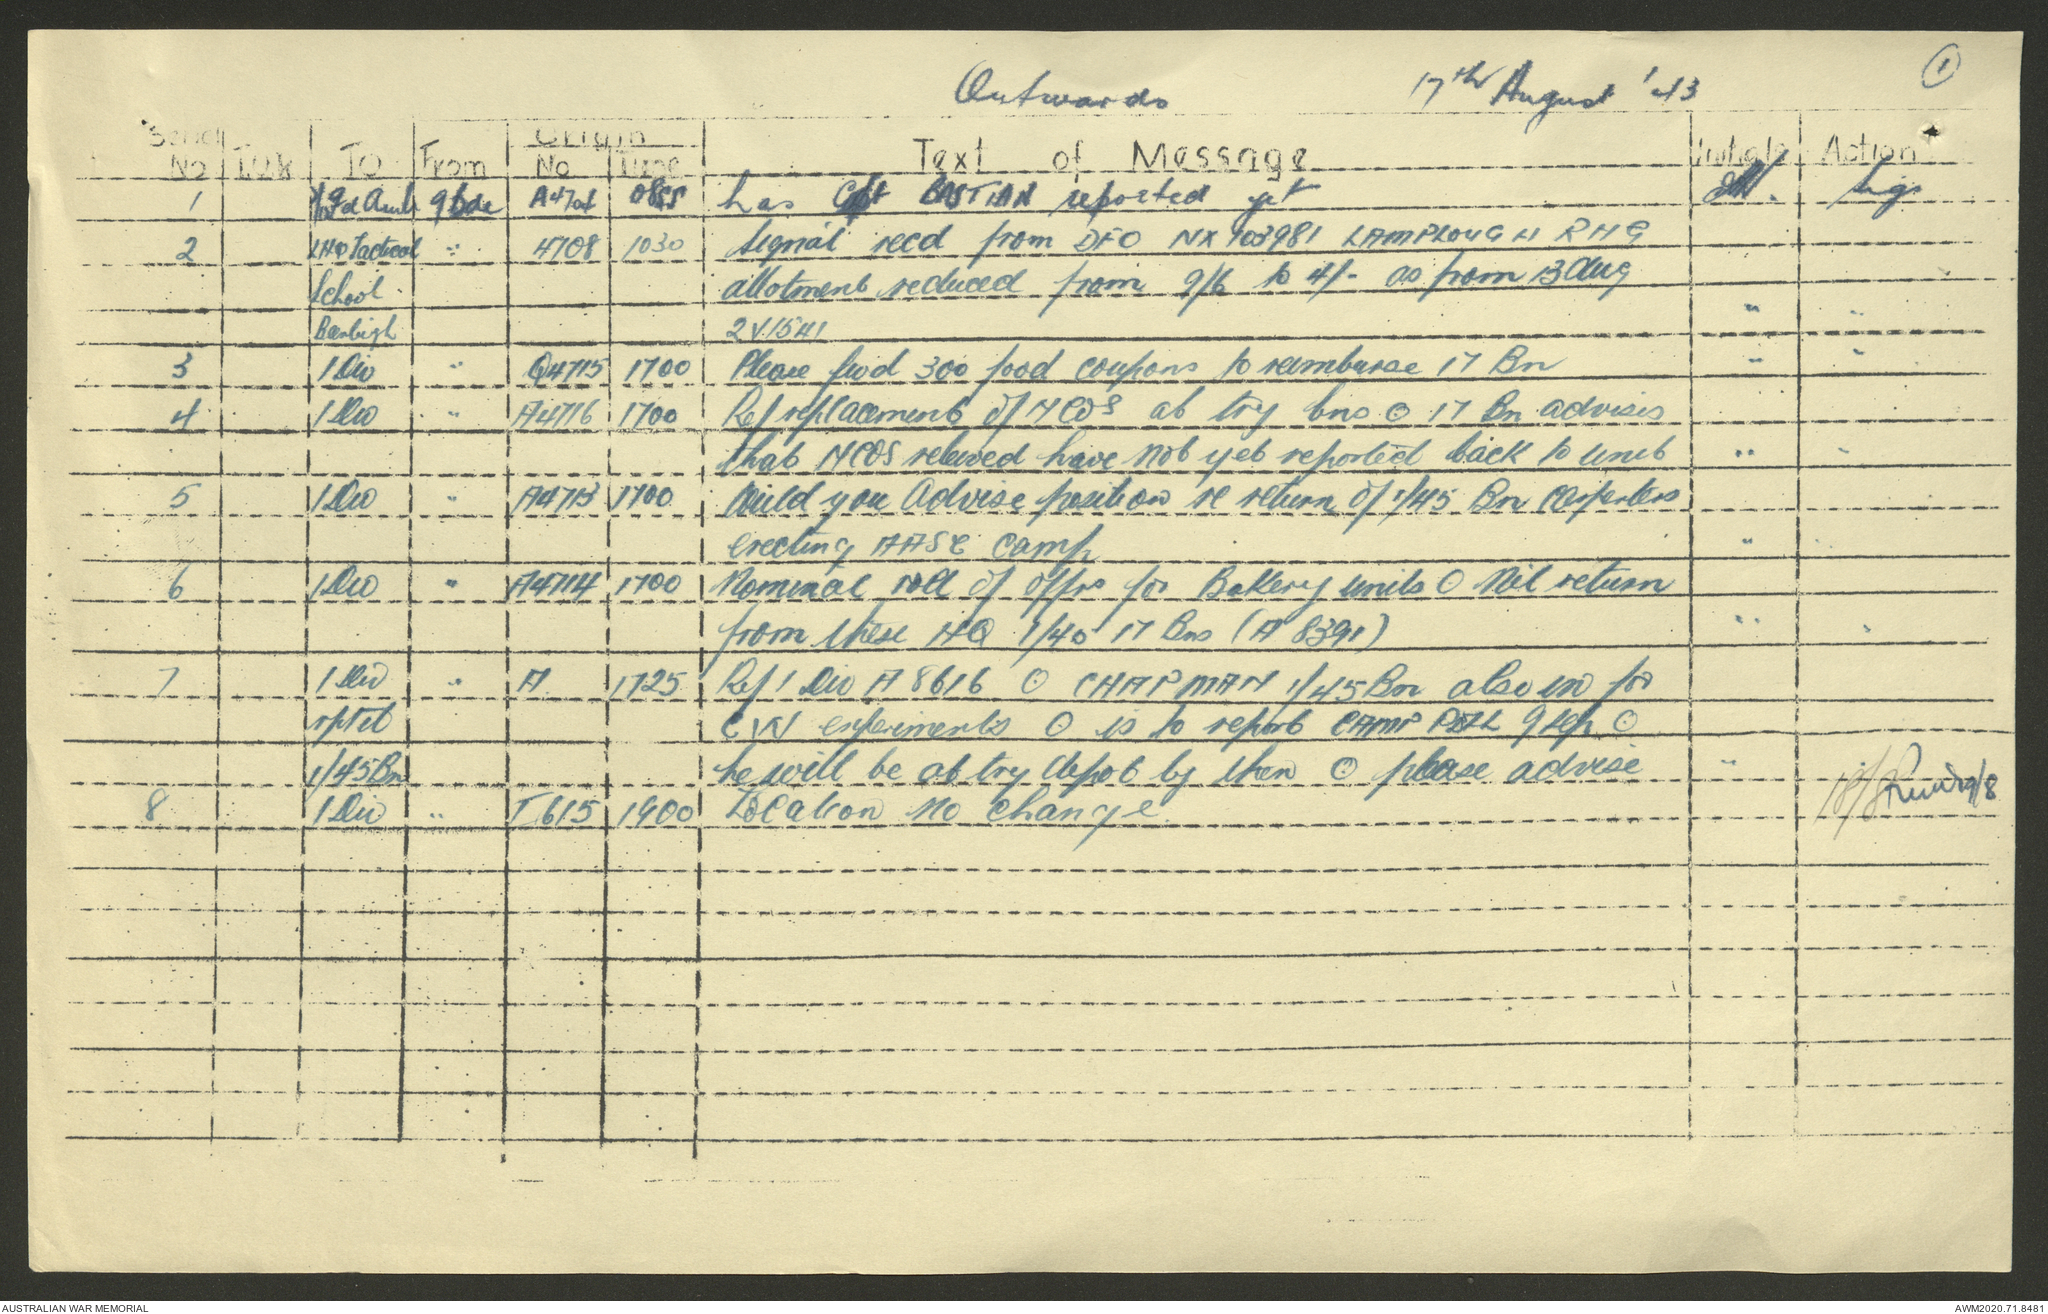 1
Outwards 17th August '43
Serial No Link To From Origin No Time Text of Message Initials Action
1 9 Fd Amb 9 bde 0855 has Capt BASTIAN reported yet Sigs
2 LHQ Tactical " 4708 1030 Signal recd from DFO NX 103981 LAMPLOUGH RHG
School allotment reduced from 9/6 to 4/- as from 13 Aug
Beenleigh 2V1541 " "
3 1 Div " Q4715 1700 Please fwd 300 food coupons to reimburse 17 Bn " "
4 1 Div " A4716 1700 Ref replacement of NCOS at trg bns ⊙ 17 Bn advises
that NCOS relieved have not yet reported back to unit " "
5 1 Div " A4713 1700 Could you advise position re return of 1/45 Bn carpenters
erecting AASC camp " "
6 1 Div " A4714 1700 Nominal roll of offrs for Battery units ⊙ Nil return
from these HQ 1/45 17 Bns (A 8391) " "
7 1 Div " A 1725 Ref 1 Div A 8616 ⊙ CHAPMAN 1/45 Bn also in for
rptd CW experiments ⊙ is to report CAMP PELL 9 Sep ⊙
1/45 Bn he will be at trg depot by then ⊙ please advise "
8 1 Div " I 615 1900 Location no change
18/8
19/8
AUSTRALIAN WAR MEMORIAL AWM2020.71.8481